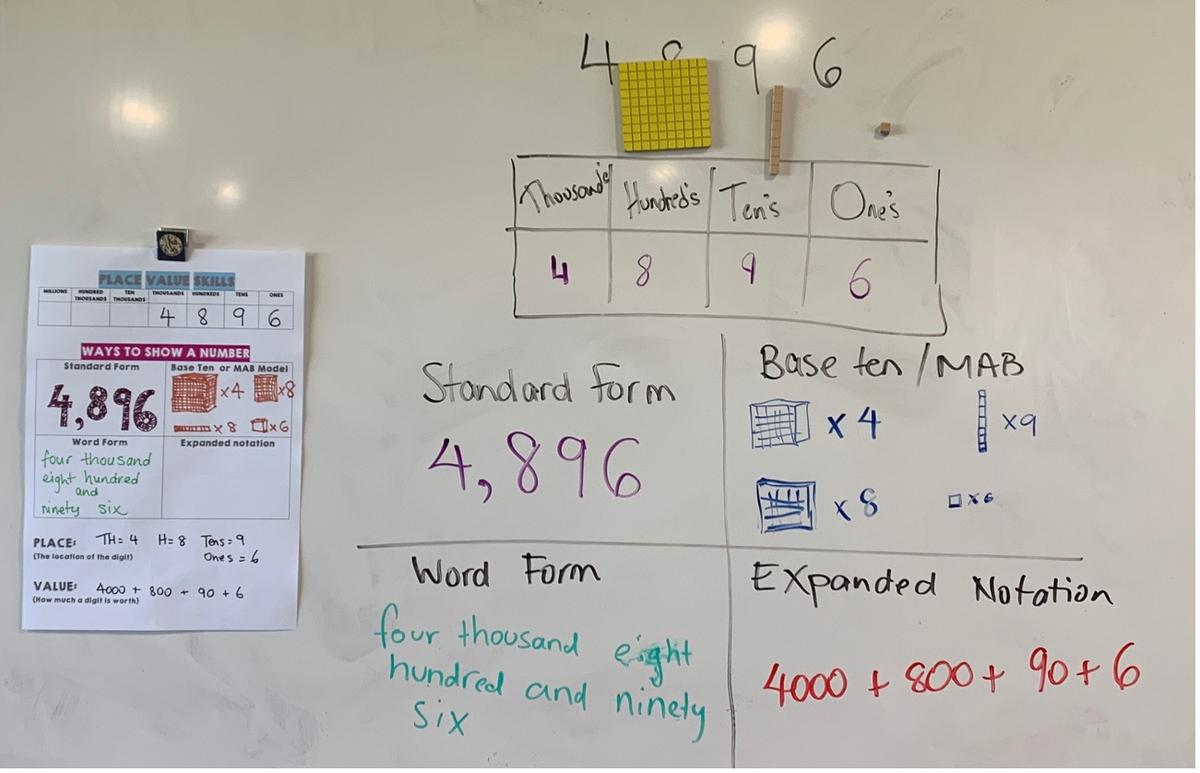 4 8 9 6
Thousand's Hundred's Ten's One's
4 8 9 6
PLACE VALUE SKILLS
MILLIONS HUNDRED THOUSANDS TEN THOUSANDS THOUSANDS HUNDREDS TENS ONES
4 8 9 6
WAYS TO SHOW A NUMBER
Standard Form
4,896
Base Ten or MAB Model
x4 x8
x8 x6
Word Form
four thousand
eight hundred
and
ninety six
Expanded notation
PLACE: TH=4 H=8 Tens=9
(The location of the digit) Ones=6
VALUE: 4000 + 800 + 90 + 6
(How much a digit is worth)
Standard Form
4,896
Base ten / MAB
x 4 x9
x 8 x6
Word Form
four thousand eight
hundred and ninety
six
Expanded Notation
4000 + 800 + 90 + 6